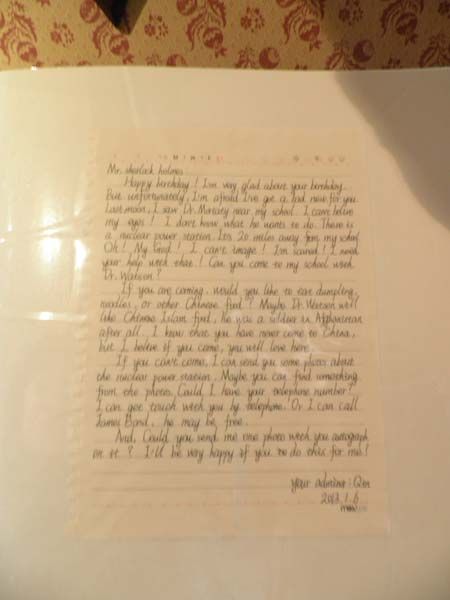 Mr. Sherlock Holmes
Happy birthday! I'm very glad about your birthday.
But unfortunately, I'm afraid I've got a bad news for you.
Last moon, I saw Dr. Moriaty near my school. I can't believe
my eyes! I don't know what he wants to do. There is
a nuclear power station. It's 20 miles away from my school
Oh! My God! I can't image! I'm scared! I need
your help with that! Can you come to my school with
Dr. Watson?
If you are coming, would you like to eat dumpling,
noodles, or other Chinese food? Maybe Dr. Watson will
like Chinese Islam food, he was a soldier in Afghanistan
after all. I know that you have never come to China,
but I believe if you come, you will love here.
If you can't come, I can send you some photos about
the nuclear power station. Maybe you can find something
from the photos. Could I have your telephone number?
I can get touch with you by telephone. Or I can call
James Bond, he may be free.
And, Could you send me one photo with you autograph
on it? I'll be very happy if you do this for me!
your admirer: Qin
2013.1.6